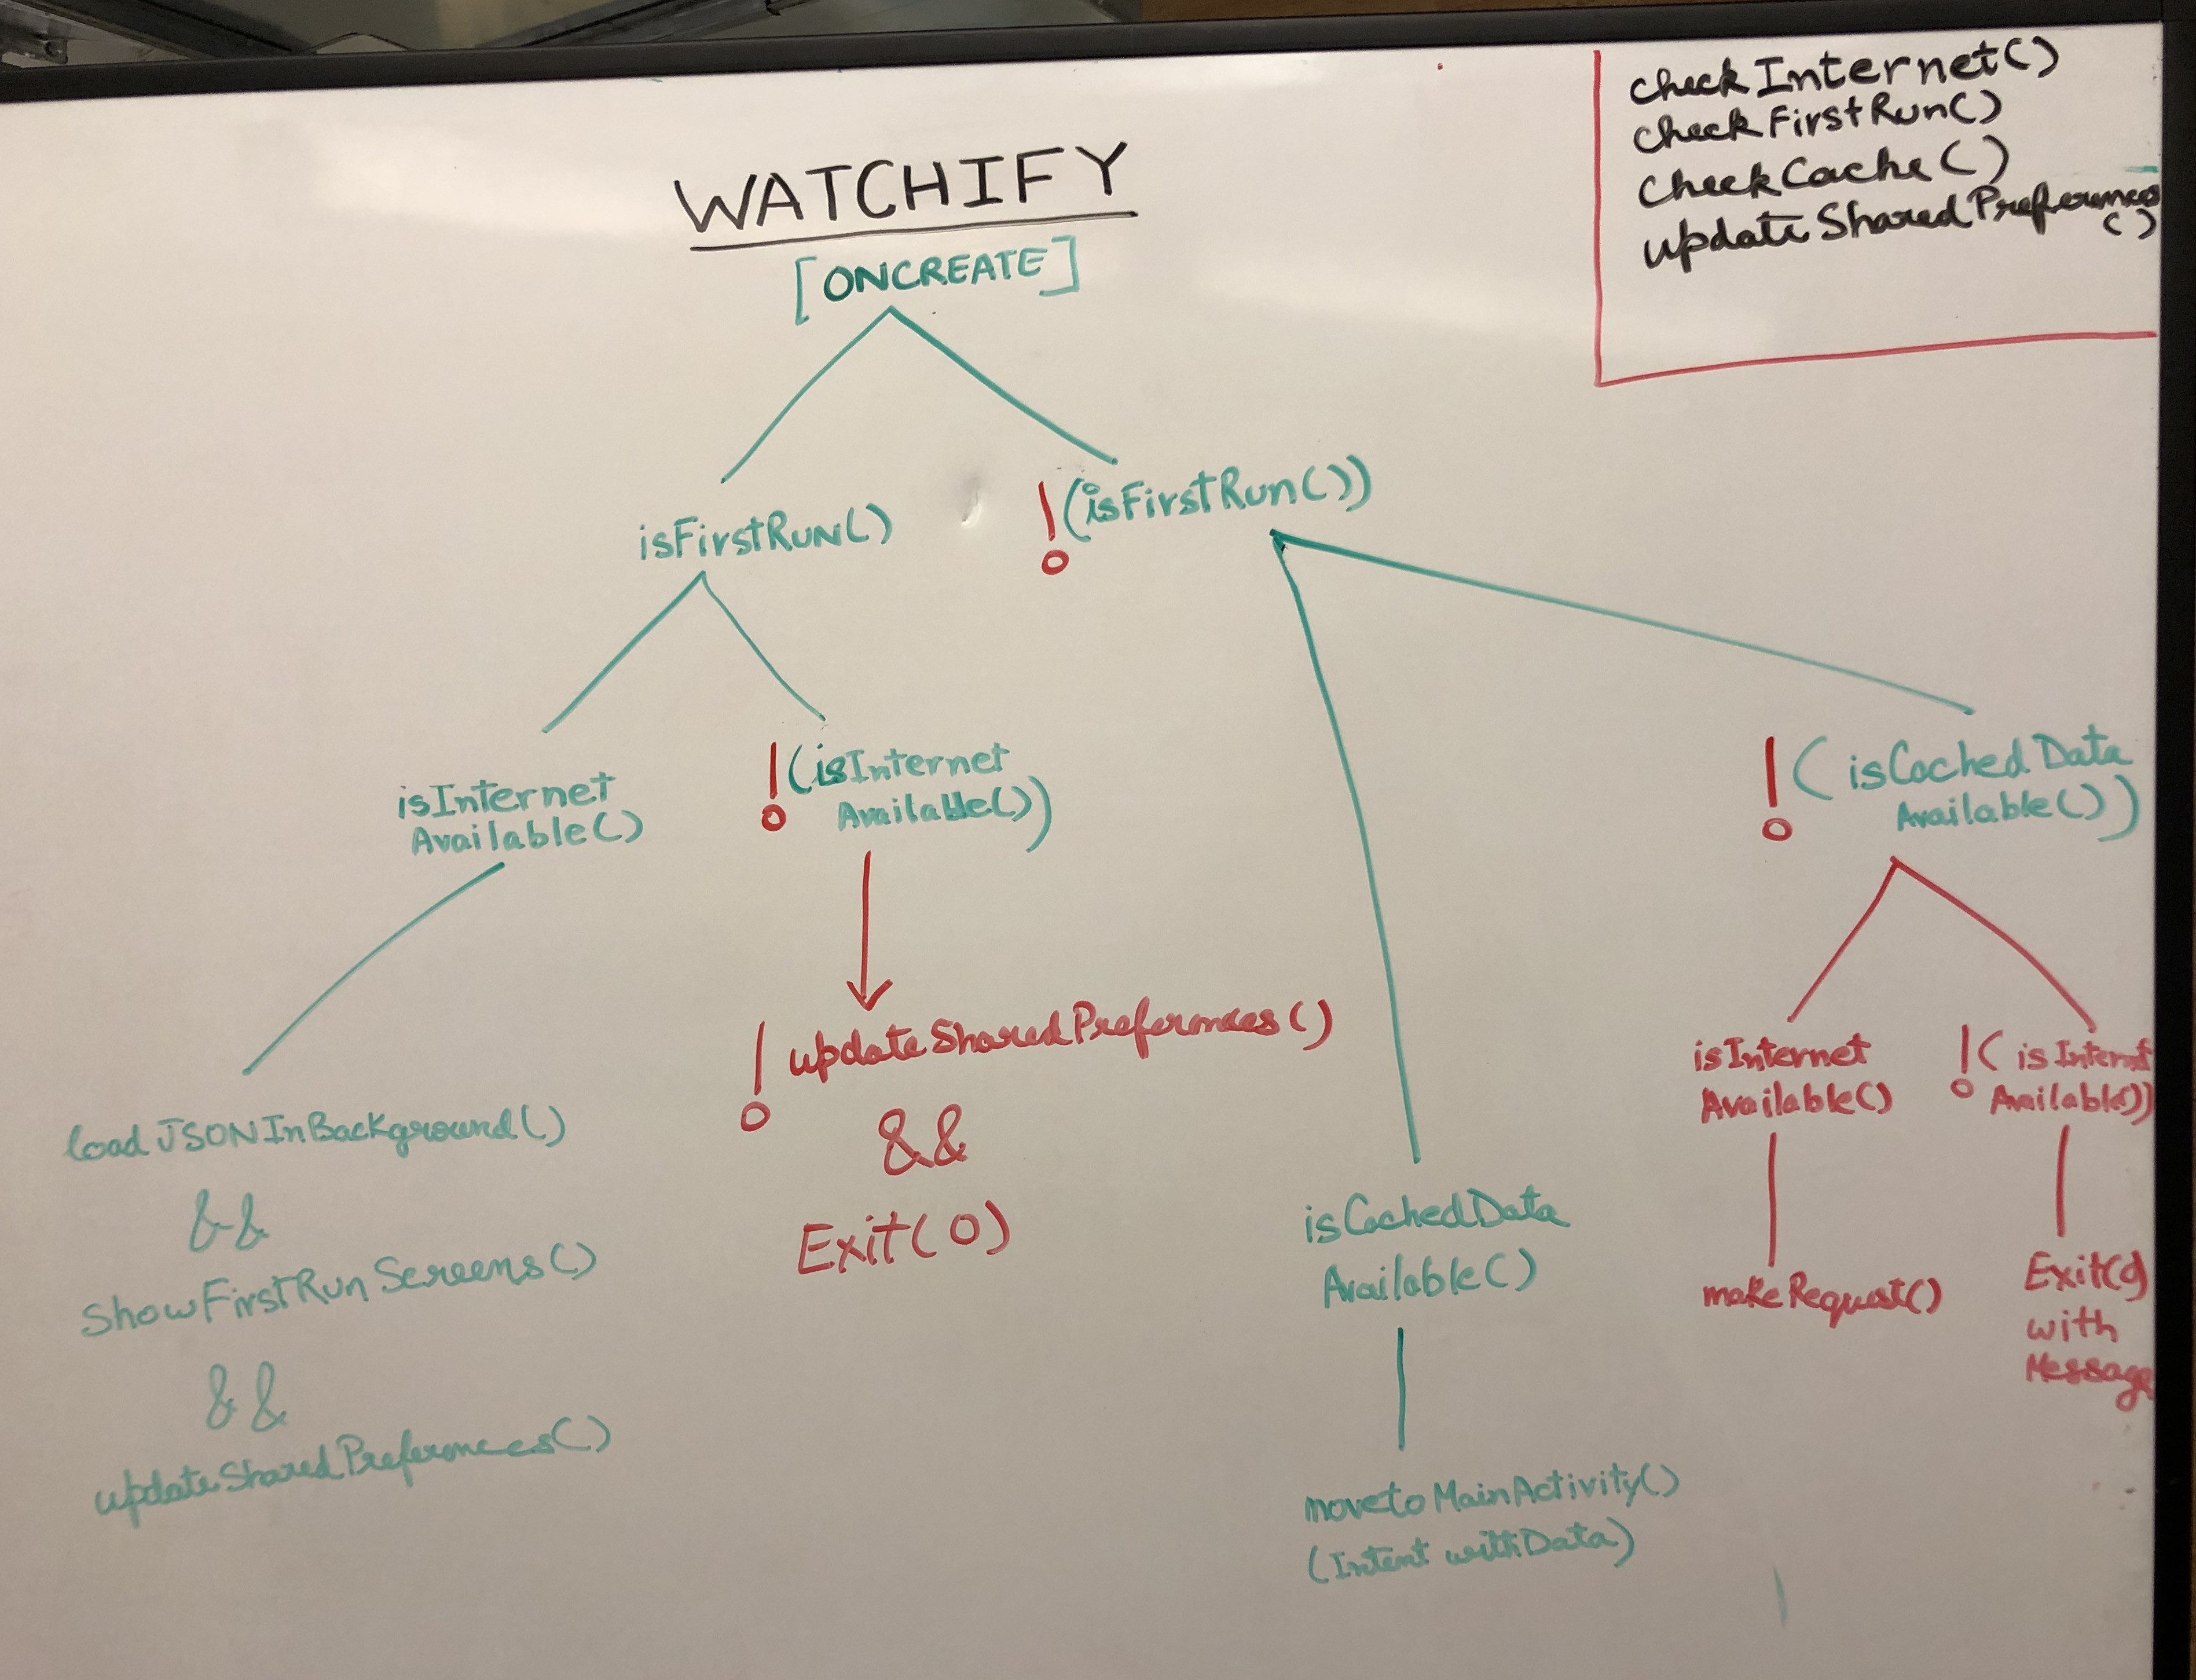 checkInternet()
checkFirstRun()
checkCache()
updateSharedPreferences
()
WATCHIFY
[ONCREATE]
isFirstRUN()
!(isFirstRun())
isInternet
Available()
!(isInternet
Available())
!(isCachedData
Available())
loadJSONInBackground()
&&
showFirstRunScreens()
&&
updateSharedPreferences()
! updateSharedPreferences()
&&
Exit(0)
isCachedData
Available()
movetoMainActivity()
(Intent withData)
isInternet
Available()
makeRequest()
!(isInternet
Available())
Exit(0)
with
Message